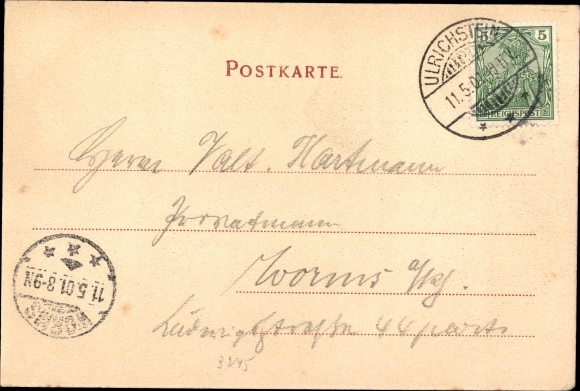 POSTKARTE.
ULRICHSTEIN
11.5.01
5
REICHSPOST
Herrn Valt. Hartmann
Privatmann
Worms a/Rh.
Ludwigstraße 44 part.
WORMS
11.5.01.8-9N
3245